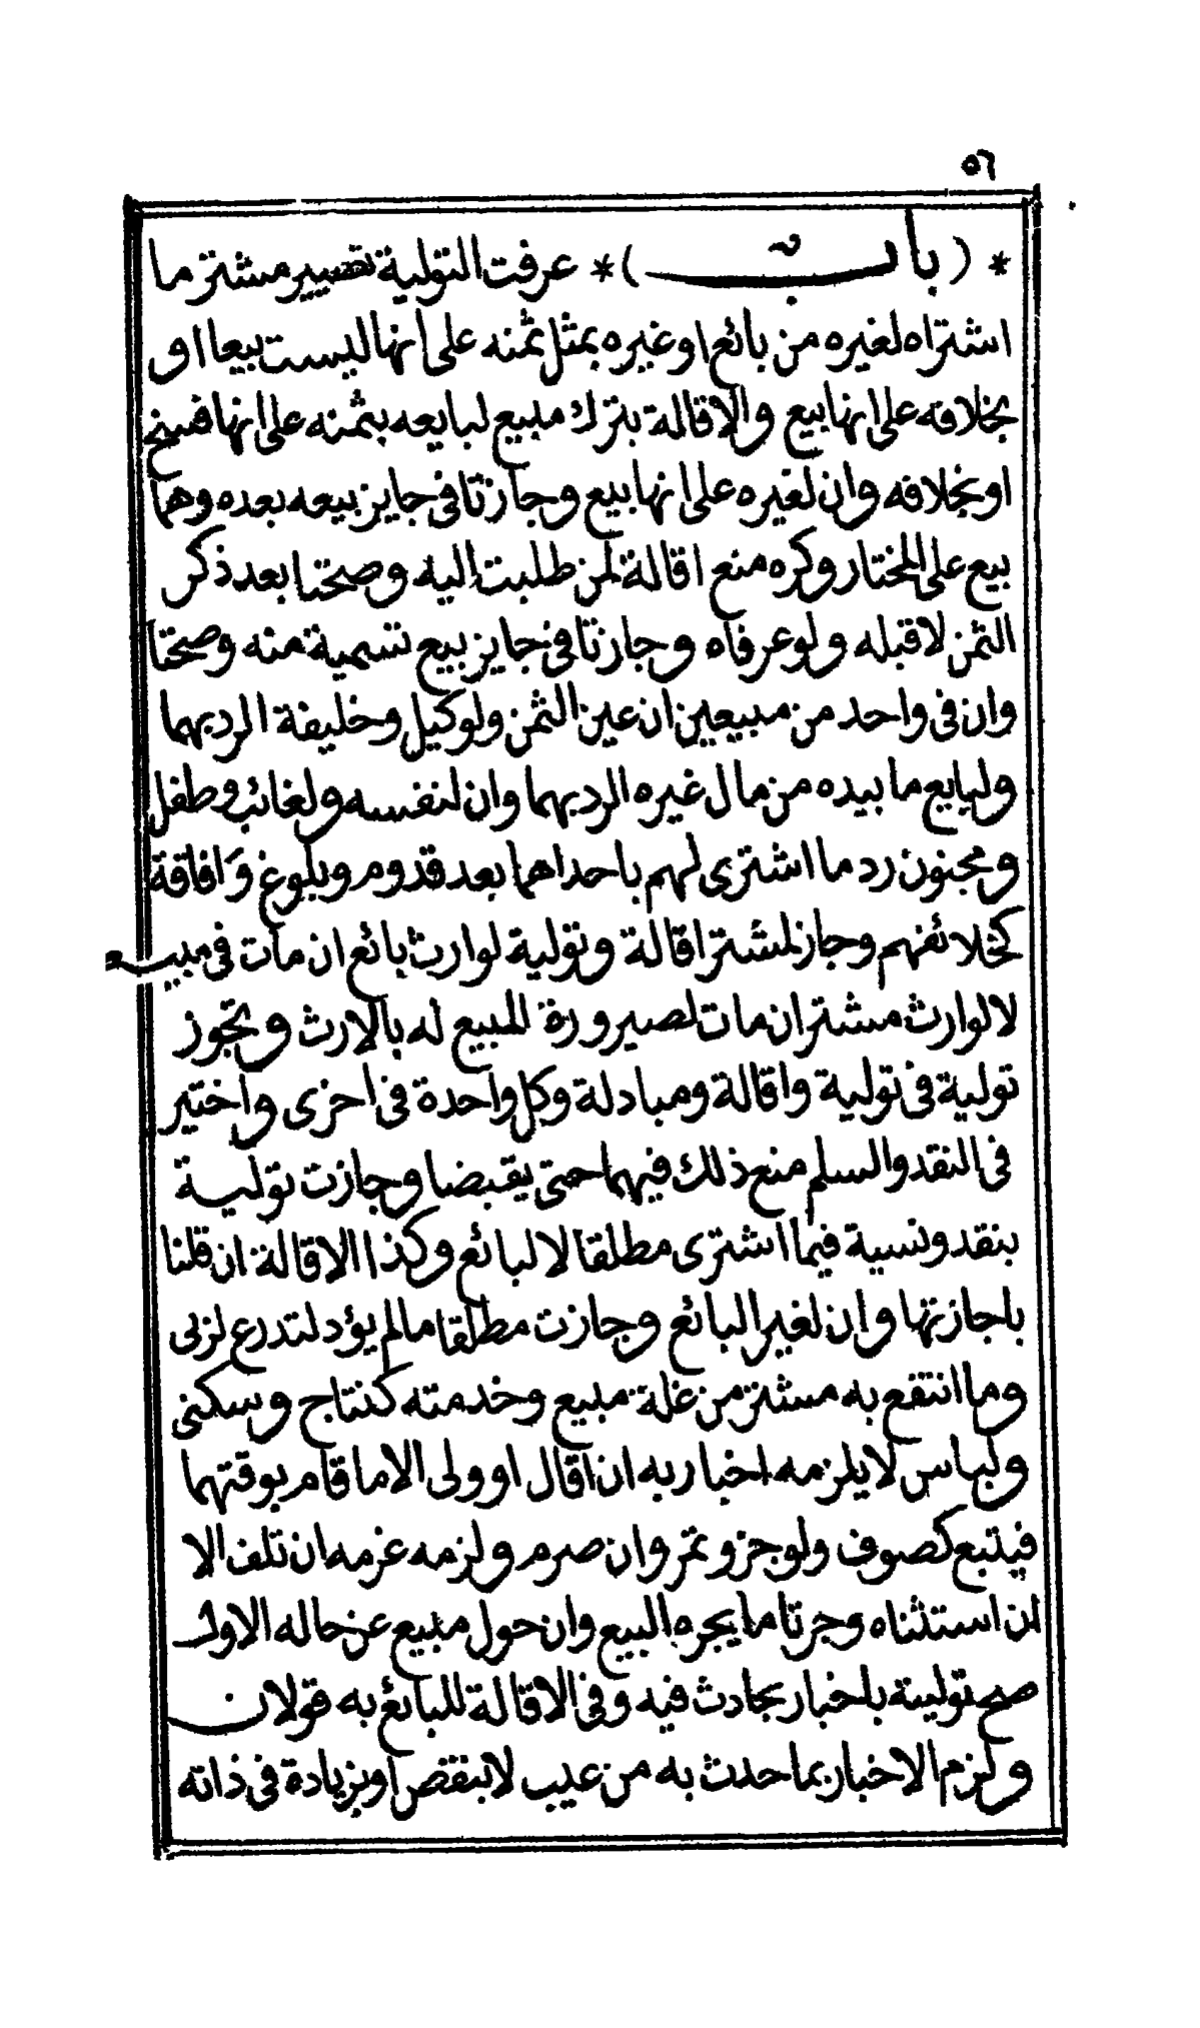 ٥٦
* ( باب ) * عرفت التولية تصيير مشتر ما
اشتراه لغيره من بائع او غيره بمثل ثمنه على انها ليست بيعا او
بخلافه على انها بيع والاقالة بترك مبيع لبايعه بثمنه على انها فسخ
او بخلافه وان لغيره على انها بيع وجازتا فى جايز بيعه بعده وهما
بيع على المختار وكره منع اقالة لمن طلبت اليه وصحتا بعد ذكر
الثمن لا قبله ولو عرفاه وجازتا فى جايز بيع تسمية منه وصحتا
وان فى واحد من مبيعين ان عين الثمن ولوكيل وخليفة الرد بهما
ولبايع ما بيده من مال غيره الرد بهما وان لنفسه ولغائب وطفل
ومجنون رد ما اشترى لهم باحداهما بعد قدوم وبلوغ وافاقة
كخلائفهم وجاز لمشتر اقالة وتولية لوارث بائع ان مات فى مبيعه
لا لوارث مشتر ان مات لصيرورة المبيع له بالارث وتجوز
تولية فى تولية واقالة ومبادلة وكل واحدة فى اخرى واختير
فى النقد والسلم منع ذلك فيهما حتى يقبضا وجازت تولية
بنقد ونسية فيما اشترى مطلقا لا لبائع وكذا الاقالة ان قلنا
باجازتها وان لغير البائع وجازت مطلقا مالم يؤد لتدرع لربى
وما انتفع به مشتر من غلة مبيع وخدمته كنتاج وسكنى
ولباس لا يلزمه اخبار به ان اقال او ولى الا ما قام بوقتهما
فيتبع كصوف ولو جز وتمر وان صرم ولزمه غرمه ان تلف الا
لمن استثناه وجرتا ما يجره البيع وان حول مبيع عن حاله الاول
صح تولية باخبار بحادث فيه وفى الاقالة للبائع به قولان
ولزم الاخبار بما حدث به من عيب لا بنقص او بزيادة فى ذاته